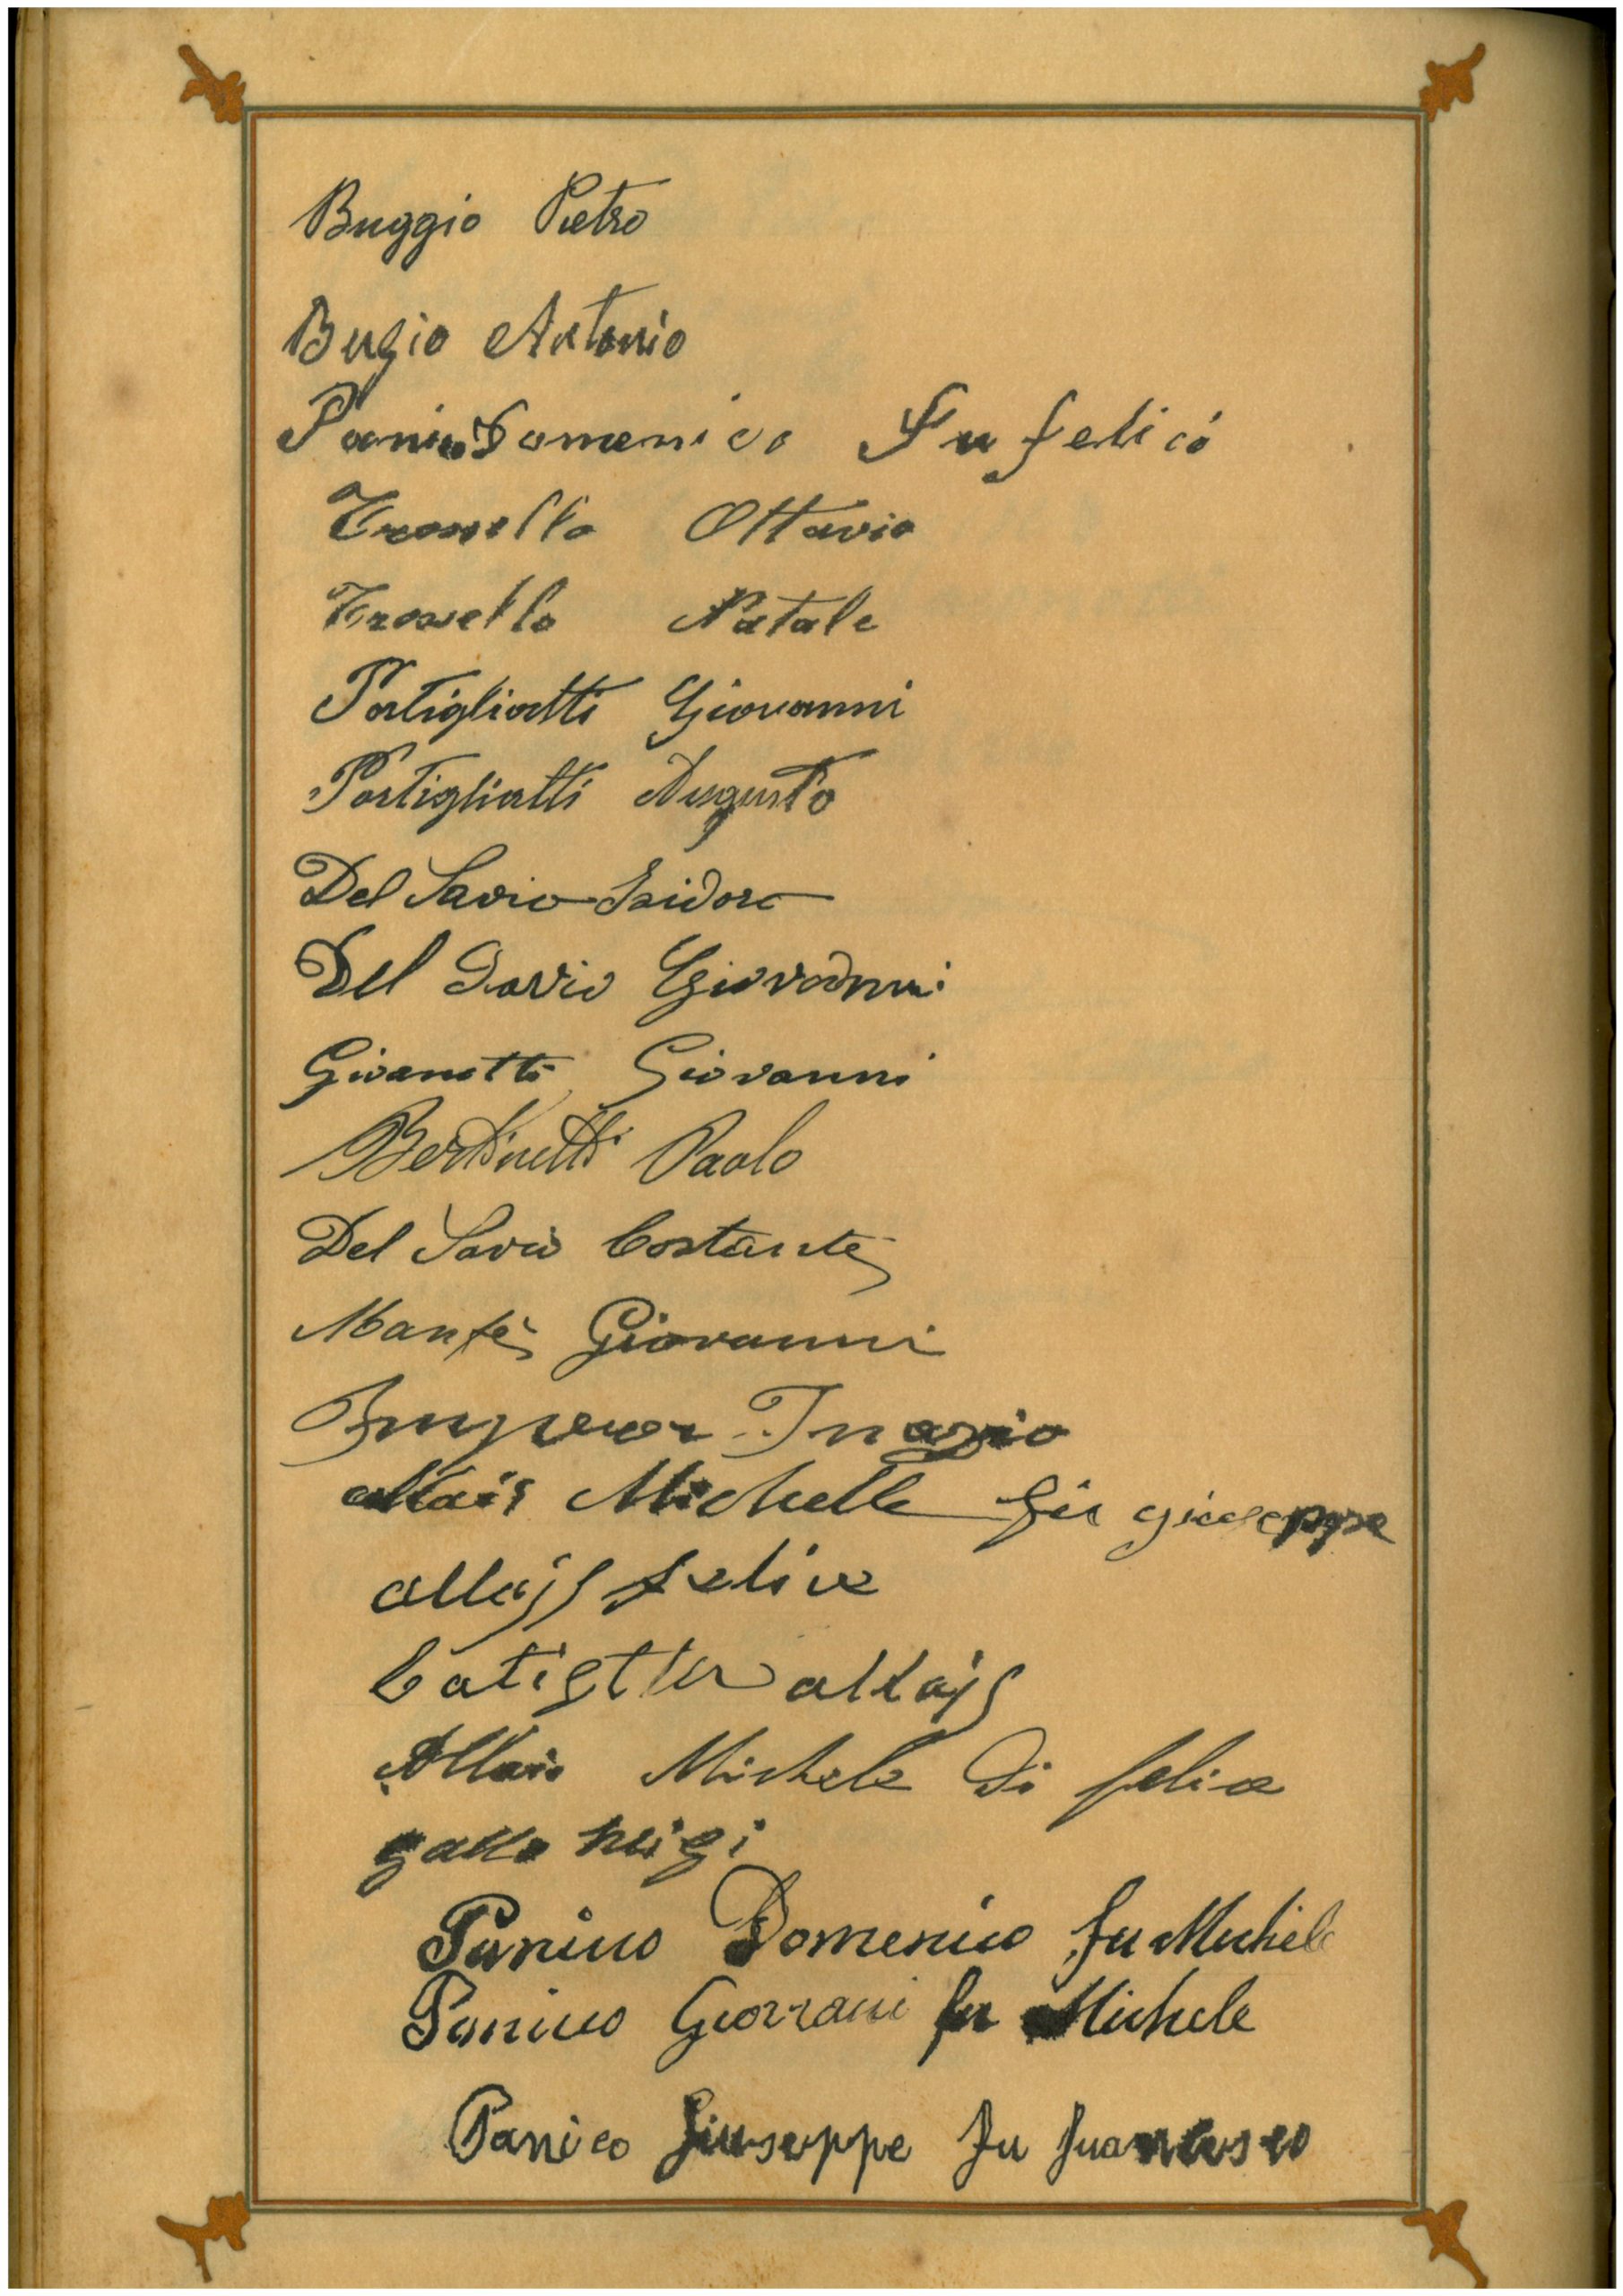 Buggio Pietro
Bugio Antonio
Panico Domenico Fu felicé
Trosello Ottavio
Trosello Natale
Portigliatti Giovanni
Portigliatti Augusto
Del Savio Isidoro
Del Savio Giovanni
Givanetti Giovanni
Bertinetti Paolo
Del Savio Costante
Giovanni
Inazio
allais Michelle fu giuseppe
allajs felice
batista allajs
Allais Michele di felice
gallo luigi
Panico Domenico fu Michele
Panico Giovanni fu Michele
Panico Giuseppe fu